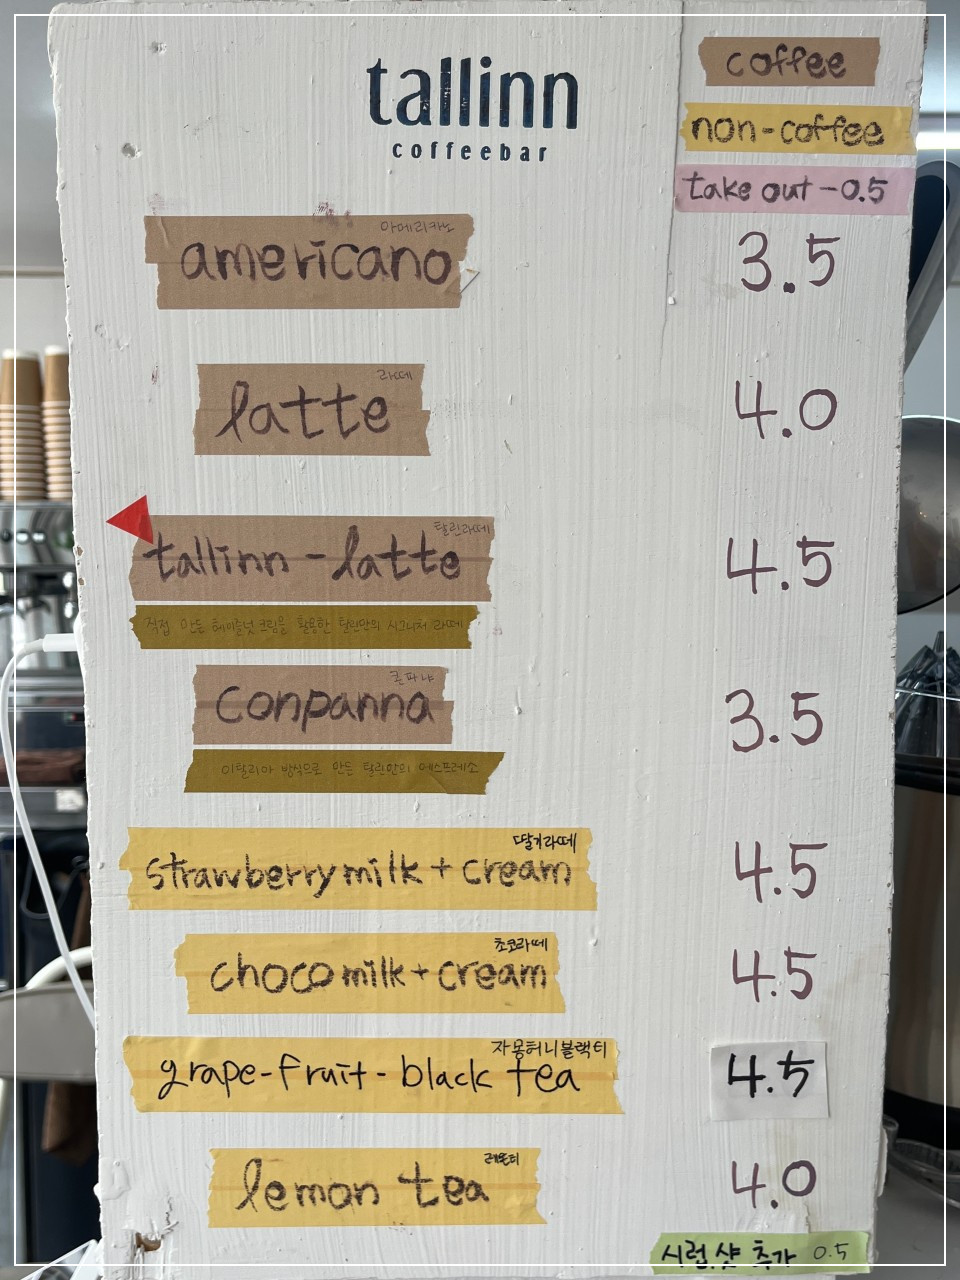 tallinn
coffeebar
coffee
non-coffee
take out -0.5
아메리카노
americano 3.5
라떼
latte 4.0
탈린라떼
tallinn-latte 4.5
직접 만든 헤이즐넛 크림을 활용한 탈린만의 시그니처 라떼
콘파냐
conpanna 3.5
이탈리아 방식으로 만든 탈린만의 에스프레소
딸기라떼
strawberry milk + cream 4.5
초코라떼
choco milk + cream 4.5
자몽허니블랙티
grape-fruit-black tea 4.5
레몬티
lemon tea 4.0
시럽, 샷 추가 0.5